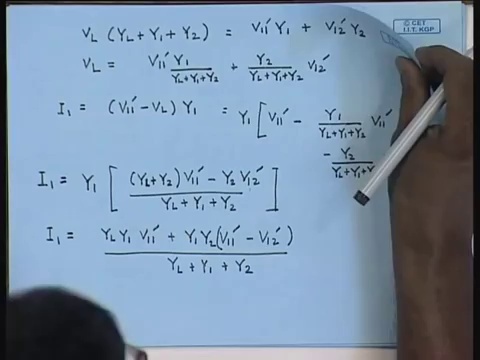 V_L (Y_L + Y_1 + Y_2) = V_11' Y_1 + V_12' Y_2
V_L = V_11' Y_1/(Y_L+Y_1+Y_2) + Y_2/(Y_L+Y_1+Y_2) V_12'
I_1 = (V_11' - V_L) Y_1 = Y_1 [ V_11' - Y_1/(Y_L+Y_1+Y_2) V_11'
- Y_2/(Y_L+Y_1+Y
I_1 = Y_1 [ ((Y_L+Y_2) V_11' - Y_2 V_12')/(Y_L + Y_1 + Y_2) ]
I_1 = (Y_L Y_1 V_11' + Y_1 Y_2 (V_11' - V_12'))/(Y_L + Y_1 + Y_2)
© CET
I.I.T. KGP